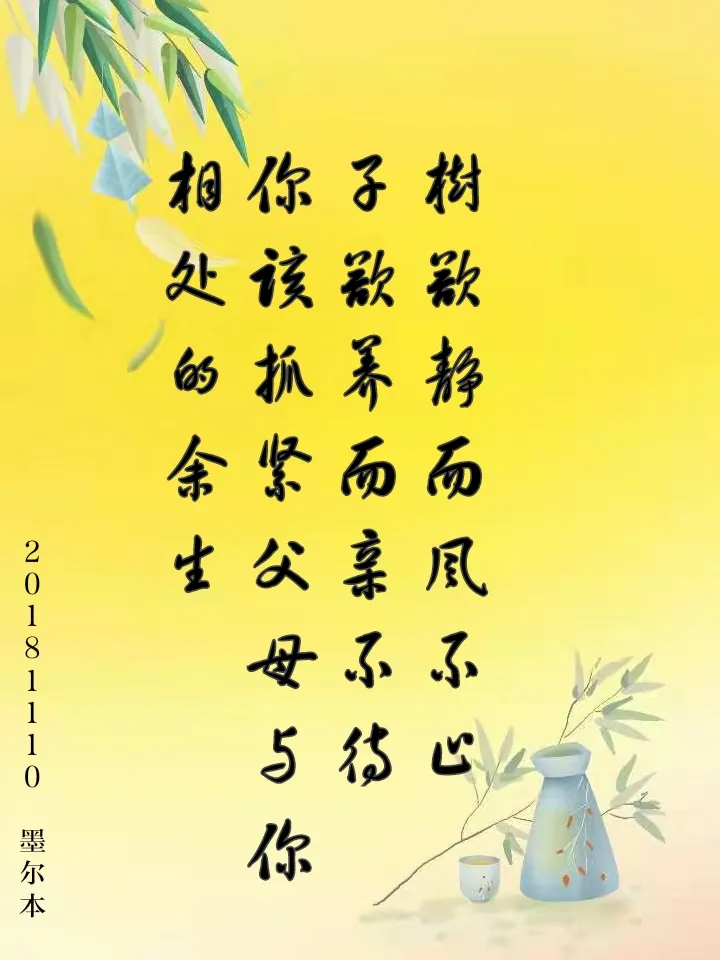 樹欲静而风不止
子欲养而亲不待
你该抓紧父母与你
相处的余生
20181110 墨尔本